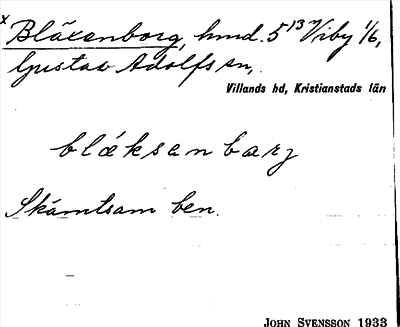 x Bläxenborg, hmd. 5 13 Viby 1/6,
Gustav Adolfs sn,
Villands hd, Kristianstads län
bláksenbarj
Skämtsam ben.
JOHN SVENSSON 1933